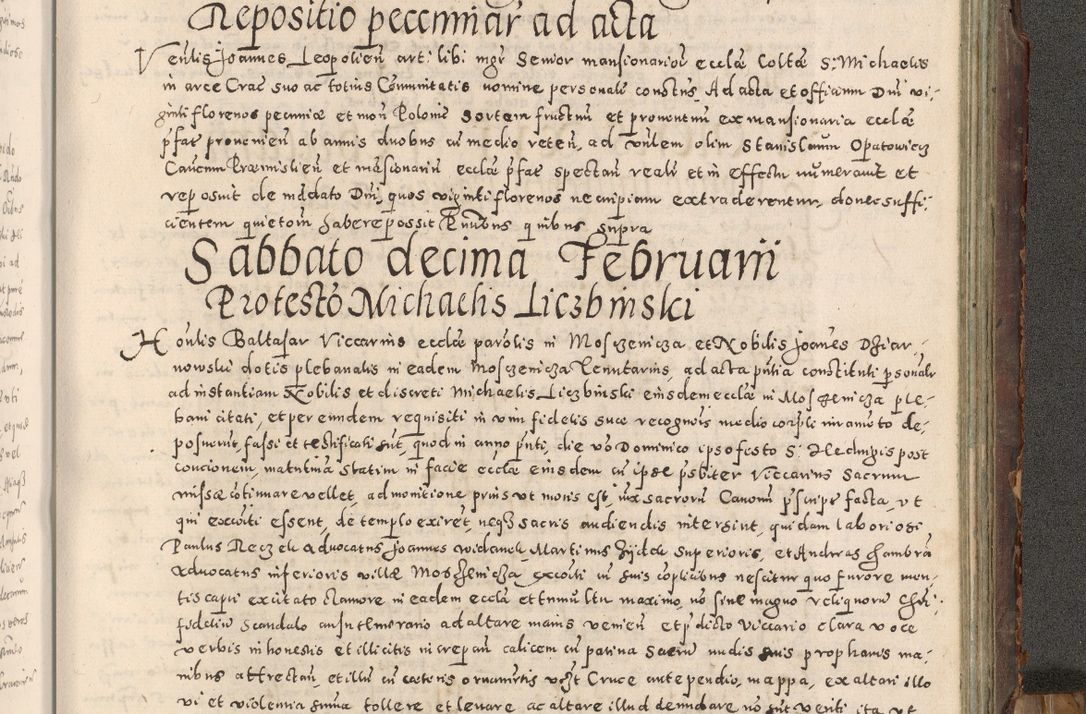 Repositio pecuniar ad acta
Venlis Joannes Leopolien art: libi mgr Senior mansionarior ecclæ Coltæ S. Michaelis
in arce Crac suo ac totius Comunitatis nomine personalr constus, Ad acta et officium Dni vi-
ginti florenos pecuniæ et mon Poloniæ sortem fructuu et proventuu ex mansionaria ecclæ
pfat provenien ab annis duobus cu medio reten, ad Vnlem olim Stanislaum Opatowicz
Canonm Præmislien et mansionariu ecclæ pfat spectan realr et in effectu numeravit et
reposuit de mandato Dni, quos viginti florenos ne cuipiam extraderentur, donec suffi-
cientem quietom habere possit Pntibus quibus supra
Sabbato decima Februarii
Protesto Michaelis Liczbinski
Honlis Baltasar Viccarius ecclæ parolis in Mosczenicza et Nobilis Joanes Dziar-
nowski dotis plebanalis in eadem Mosczenicza Tenutarius, ad acta pntia constituti psonalr
ad instantiam Nobilis et discreti Michaelis Liczbinski eiusdem ecclæ in Mosczenicza ple-
bani citati, et per eundem requisiti in vim fidelis suæ recognois medio corpli iuramento de-
posuerut, fassi et testificati sut, quod in anno pnti, die vo Dominico ipso festo S. Hedvigis post
concionem, matutina statim in facie ecclæ eiusdem cu ipse psbiter Viccarius Sacrum
missæ cotinuare vellet, admonitione prius vt moris est, iux sacroru Canonu pscript facta, vt
qui excoiti essent, de templo exiret, neqz sacris audiendis intersint, quidam laboriosi
Paulus Reczek Advocatus Joannes widawek Martinus Zydek superioris, et Andreas chambra
Advocatus inferioris villæ Moszczenicza excoiti cu suis coplicibus nescitur quo furore men-
tis capti excitato clamore in eadem eccla et tumultu maximo, no sine magno reliquoru Chri
fideliu scandalo ausu temerario ad altare maius venien et pdicto Viccario clara voce
verbis inhonestis et illicitis increpan calicem cu patina sacru nudis suis prophanis ma-
nibus attrectan, et illu cu cæteris ornamentis vizt Cruce antependio, mappa, ex altari illo
vi et violentia summa tollere et levare ac altare illud denudare no sut veriti ita vt